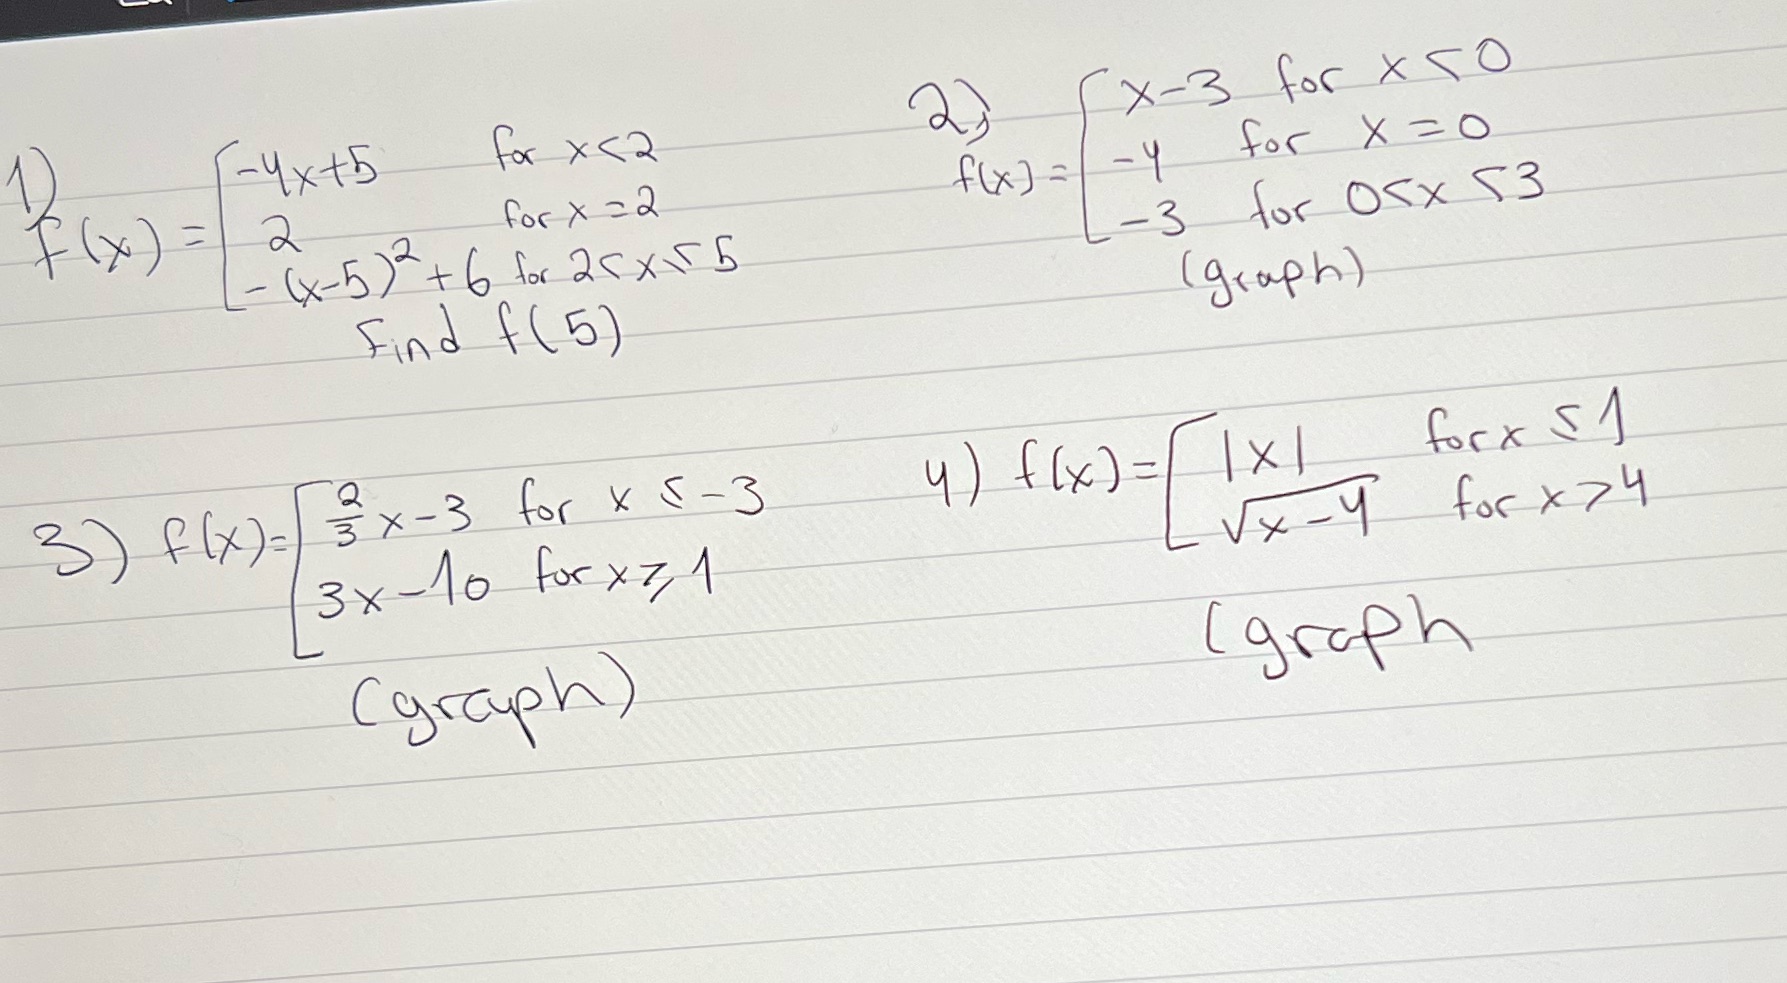 1)
f(x) = [ -4x+5 for x<2
2 for x=2
-(x-5)²+6 for 2<x≤5
Find f(5)
2)
f(x) = [ x-3 for x<0
-4 for x=0
-3 for 0<x≤3
(graph)
3) f(x)= [ 2/3 x-3 for x≤-3
3x-10 for x≥1
(graph)
4) f(x)= [ |x| for x≤1
√x-4 for x>4
(graph